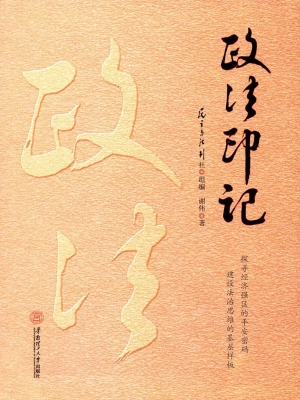 政法印记
政法
民主与法制社 组编 谢伟 著
探寻经济强区的平安密码
建设法治思维的基层样板
华南理工大学出版社